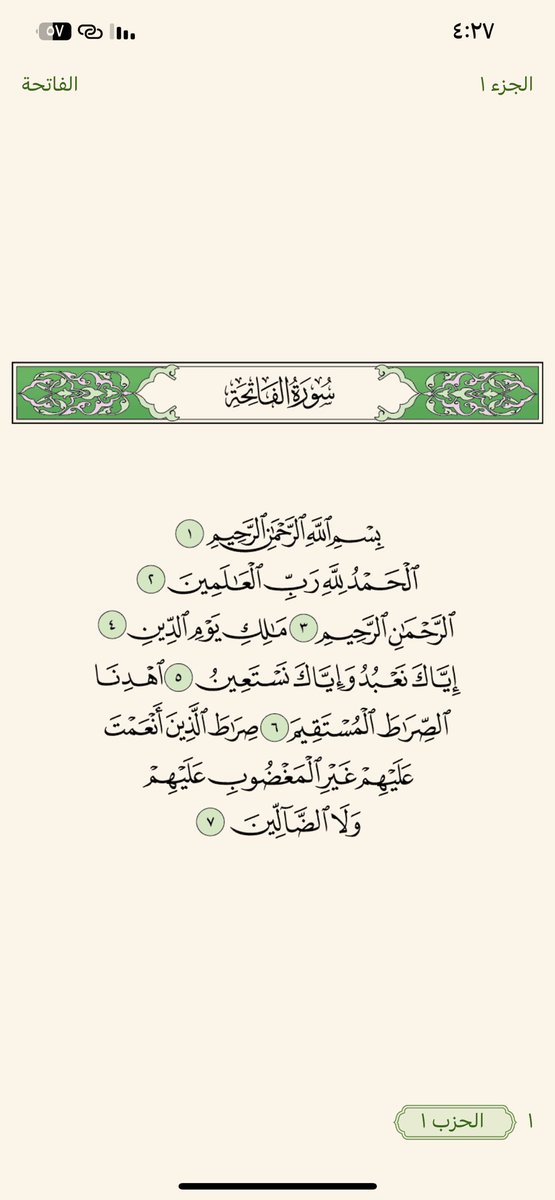 ٤:٢٧
٥٧
الجزء ١
الفاتحة
سُورَةُ الفَاتِحَةِ
بِسْمِ ٱللَّهِ ٱلرَّحْمَٰنِ ٱلرَّحِيمِ ١
ٱلْحَمْدُ لِلَّهِ رَبِّ ٱلْعَٰلَمِينَ ٢
ٱلرَّحْمَٰنِ ٱلرَّحِيمِ ٣ مَٰلِكِ يَوْمِ ٱلدِّينِ ٤
إِيَّاكَ نَعْبُدُ وَإِيَّاكَ نَسْتَعِينُ ٥ ٱهْدِنَا
ٱلصِّرَٰطَ ٱلْمُسْتَقِيمَ ٦ صِرَٰطَ ٱلَّذِينَ أَنْعَمْتَ
عَلَيْهِمْ غَيْرِ ٱلْمَغْضُوبِ عَلَيْهِمْ
وَلَا ٱلضَّآلِّينَ ٧
١
الحزب ١